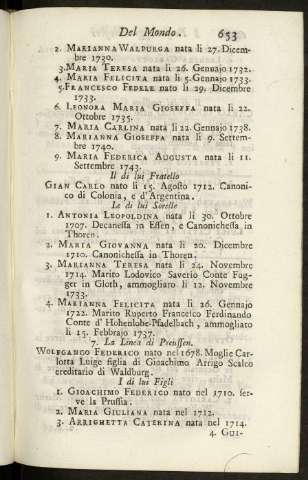 Del Mondo. 653
2. MARIANNA WALDURGA nata li 27. Dicem-
bre 1730.
3. MARIA TERESA nata li 26. Gennaio 1732.
4. MARIA FELICITA nata li 5. Gennajo 1733.
5. FRANCESCO FEDELE nato li 29. Dicembre
1733.
6. LEONORA MARIA GIOSEFFA nata li 22.
Ottobre 1735.
7. MARIA CARLINA nata li 22. Gennajo 1738.
8. MARIANNA GIOSEFFA nata li 9. Settem-
bre 1740.
9. MARIA FEDERICA AUGUSTA nata li 11.
Settembre 1743.
Il di lui Fratello
GIAN CARLO nato li 15. Agosto 1712. Canoni-
co di Colonia, e d'Argentina.
Le di lui Sorelle
1. ANTONIA LEOPOLDINA nata li 30. Ottobre
1707. Decanessa in Essen, e Canonichessa in
Thoren.
2. MARIA GIOVANNA nata li 20. Dicembre
1710. Canonichessa in Thoren.
3. MARIANNA TERESA nata li 24. Novembre
1714. Marito Lodovico Saverio Conte Fug-
ger in Gloth, ammogliaro li 12. Novembre
1733.
4. MARIANNA FELICITA nata li 26. Gennajo
1722. Marito Ruperto Francesco Ferdinando
Conte d'Hohenlohe-Pfadelbach, ammogliato
li 15. Febbrajo 1737.
7. La Linea di Preussen.
WOLFGANGO FEDERICO nato nel 1678. Moglie Car-
lotta Luige figlia di Gioachimo Arrigo Scalco
ereditario di Waldburg.
I di lui Figli
1. GIOACHIMO FEDERICO nato nel 1710. ser-
ve la Prussia.
2. MARIA GIULIANA nata nel 1712.
3. ARRIGHETTA CATERINA nata nel 1714.
4. GUI-